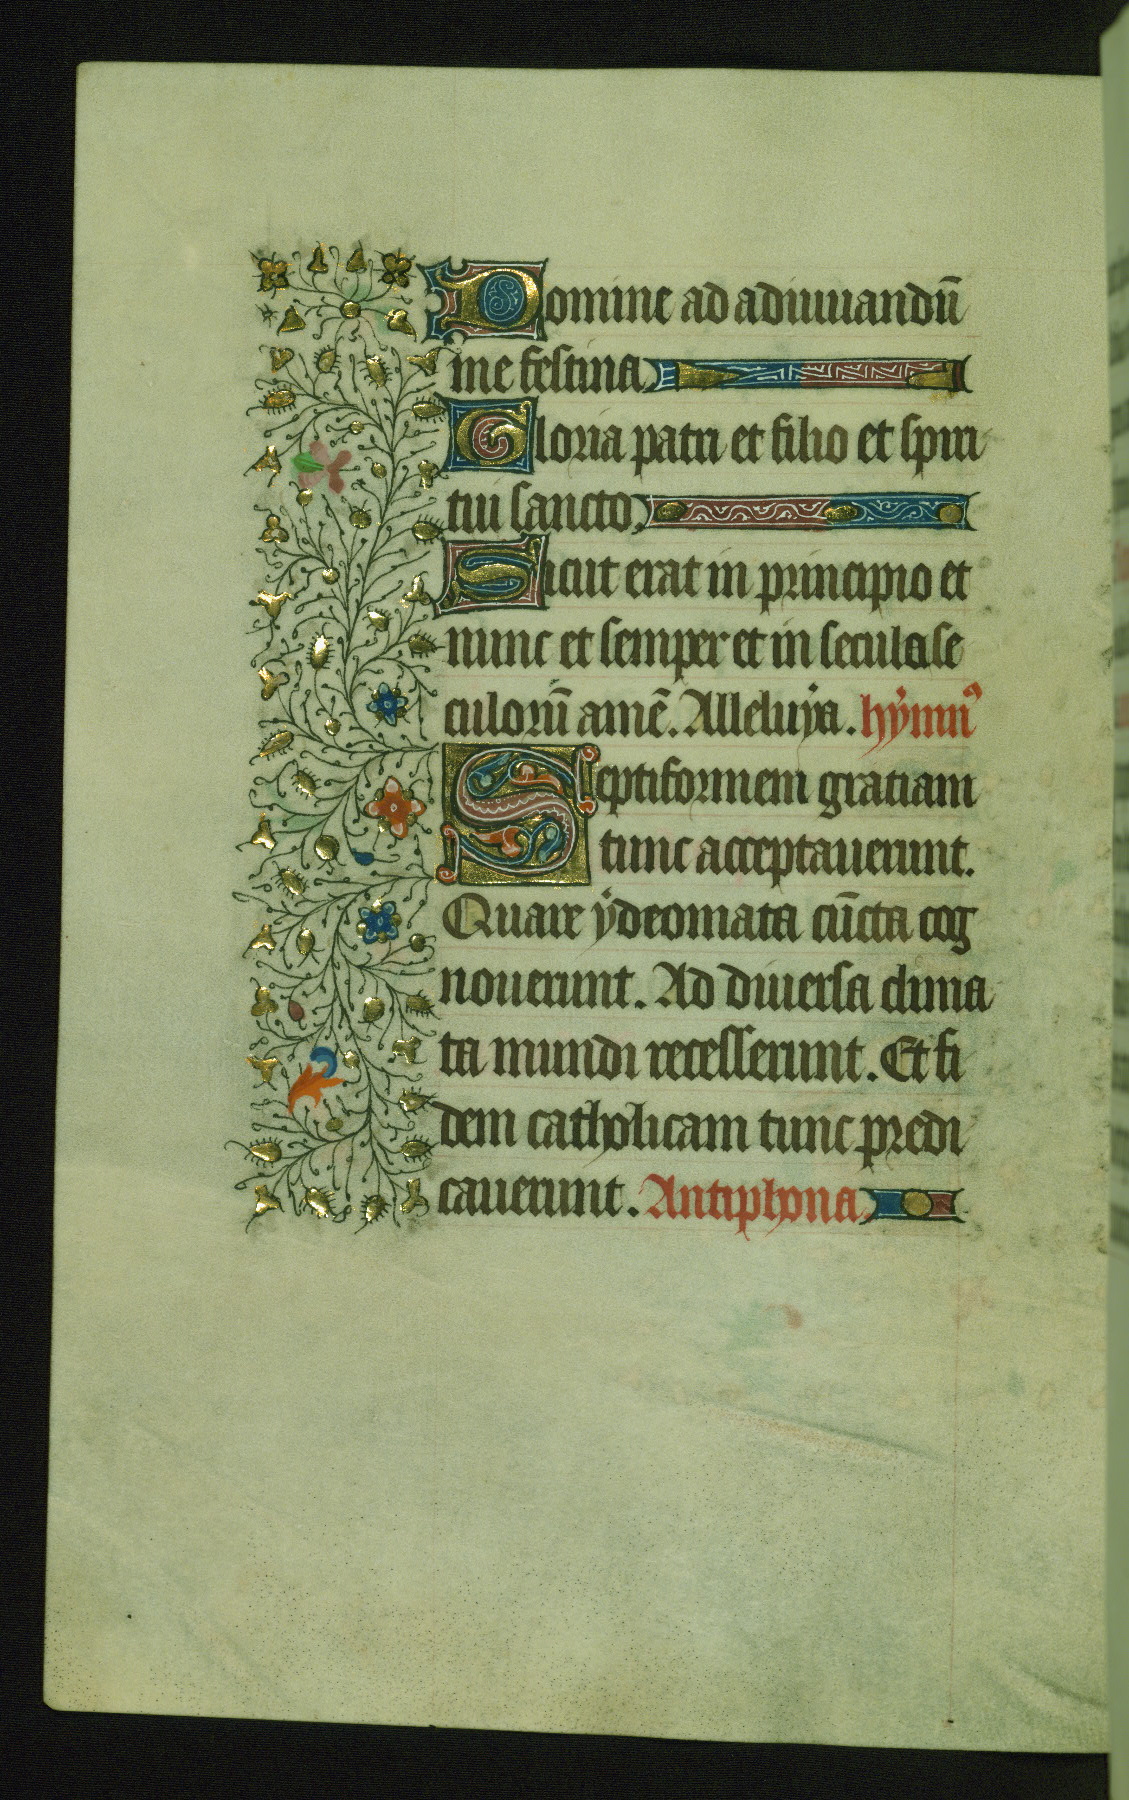 Domine ad adiuuandū
me festina
Gloria patri et filio et spiri
tui sancto
Sicut erat in principio et
nunc et semper et in secula se
culorū amē. Alleluya. hymn᾽
Septiformem gratiam
tunc acceptauerunt.
Quare ydeomata cūcta cog
nouerunt. Ad diuersa clima
ta mundi recesserunt. Et fi
dem catholicam tunc predi
cauerunt. Antiphona